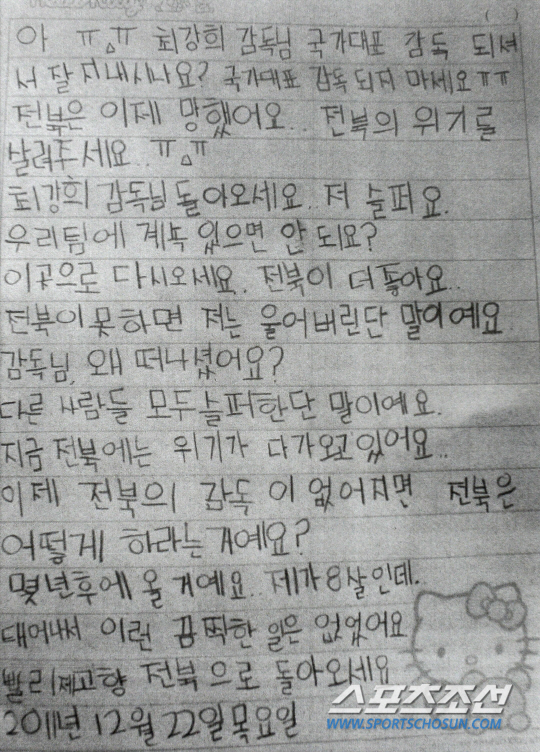 ( )
아 ㅠㅿㅠ 최강희 감독님 국가대표 감독 되셔
서 잘 지내시나요? 국가대표 감독 되지 마세요 ㅠㅠ
전북은 이제 망했어요.. 전북의 위기를
살려주세요..ㅠㅿㅠ
최강희 감독님 돌아오세요. 저 슬퍼요.
우리팀에 계속 있으면 안 되요?
이곳으로 다시오세요. 전북이 더 좋아요..
전북이 못하면 저는 울어버린단 말이예요
감독님, 왜 떠나셨어요?
다른 사람들 모두 슬퍼한단 말이예요.
지금 전북에는 위기가 다가오고 있어요..
이제 전북의 감독이 없어지면 전북은
어떻게 하라는 거예요?
몇년후에 올 거예요. 제가 8살인데.
태어나서 이런 끔찍한 일은 없었어요
빨리 제고향 전북으로 돌아오세요
2011년 12월 22일 목요일
스포츠조선
WWW.SPORTSCHOSUN.COM